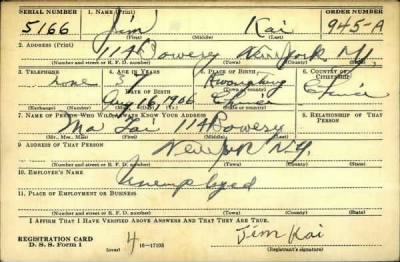 SERIAL NUMBER 1. NAME (Print) ORDER NUMBER
5166 Jim Kai 945-A
(First) (Middle) (Last)
2. ADDRESS (Print)
114 Bowery New York N.Y.
(Number and street or R. F. D. number) (Town) (County) (State)
3. TELEPHONE 4. AGE IN YEARS 5. PLACE OF BIRTH 6. COUNTRY OF CITIZENSHIP
none Kwangtung China
DATE OF BIRTH (Town or county)
Aug 16, 1906 China
(Exchange) (Number) (Mo.) (Day) (Yr.) (State or country)
7. NAME OF PERSON WHO WILL ALWAYS KNOW YOUR ADDRESS 8. RELATIONSHIP OF THAT PERSON
Ma Lai 114 Bowery
(Mr., Mrs., Miss) (First) (Middle) (Last)
9. ADDRESS OF THAT PERSON
New York N.Y.
(Number and street or R. F. D. number) (Town) (County) (State)
10. EMPLOYER'S NAME
Unemployed
11. PLACE OF EMPLOYMENT OR BUSINESS
(Number and street or R. F. D. number) (Town) (County) (State)
I AFFIRM THAT I HAVE VERIFIED ABOVE ANSWERS AND THAT THEY ARE TRUE.
REGISTRATION CARD Jim Kai
D. S. S. Form 1 (over) 16-17105 (Registrant's signature)